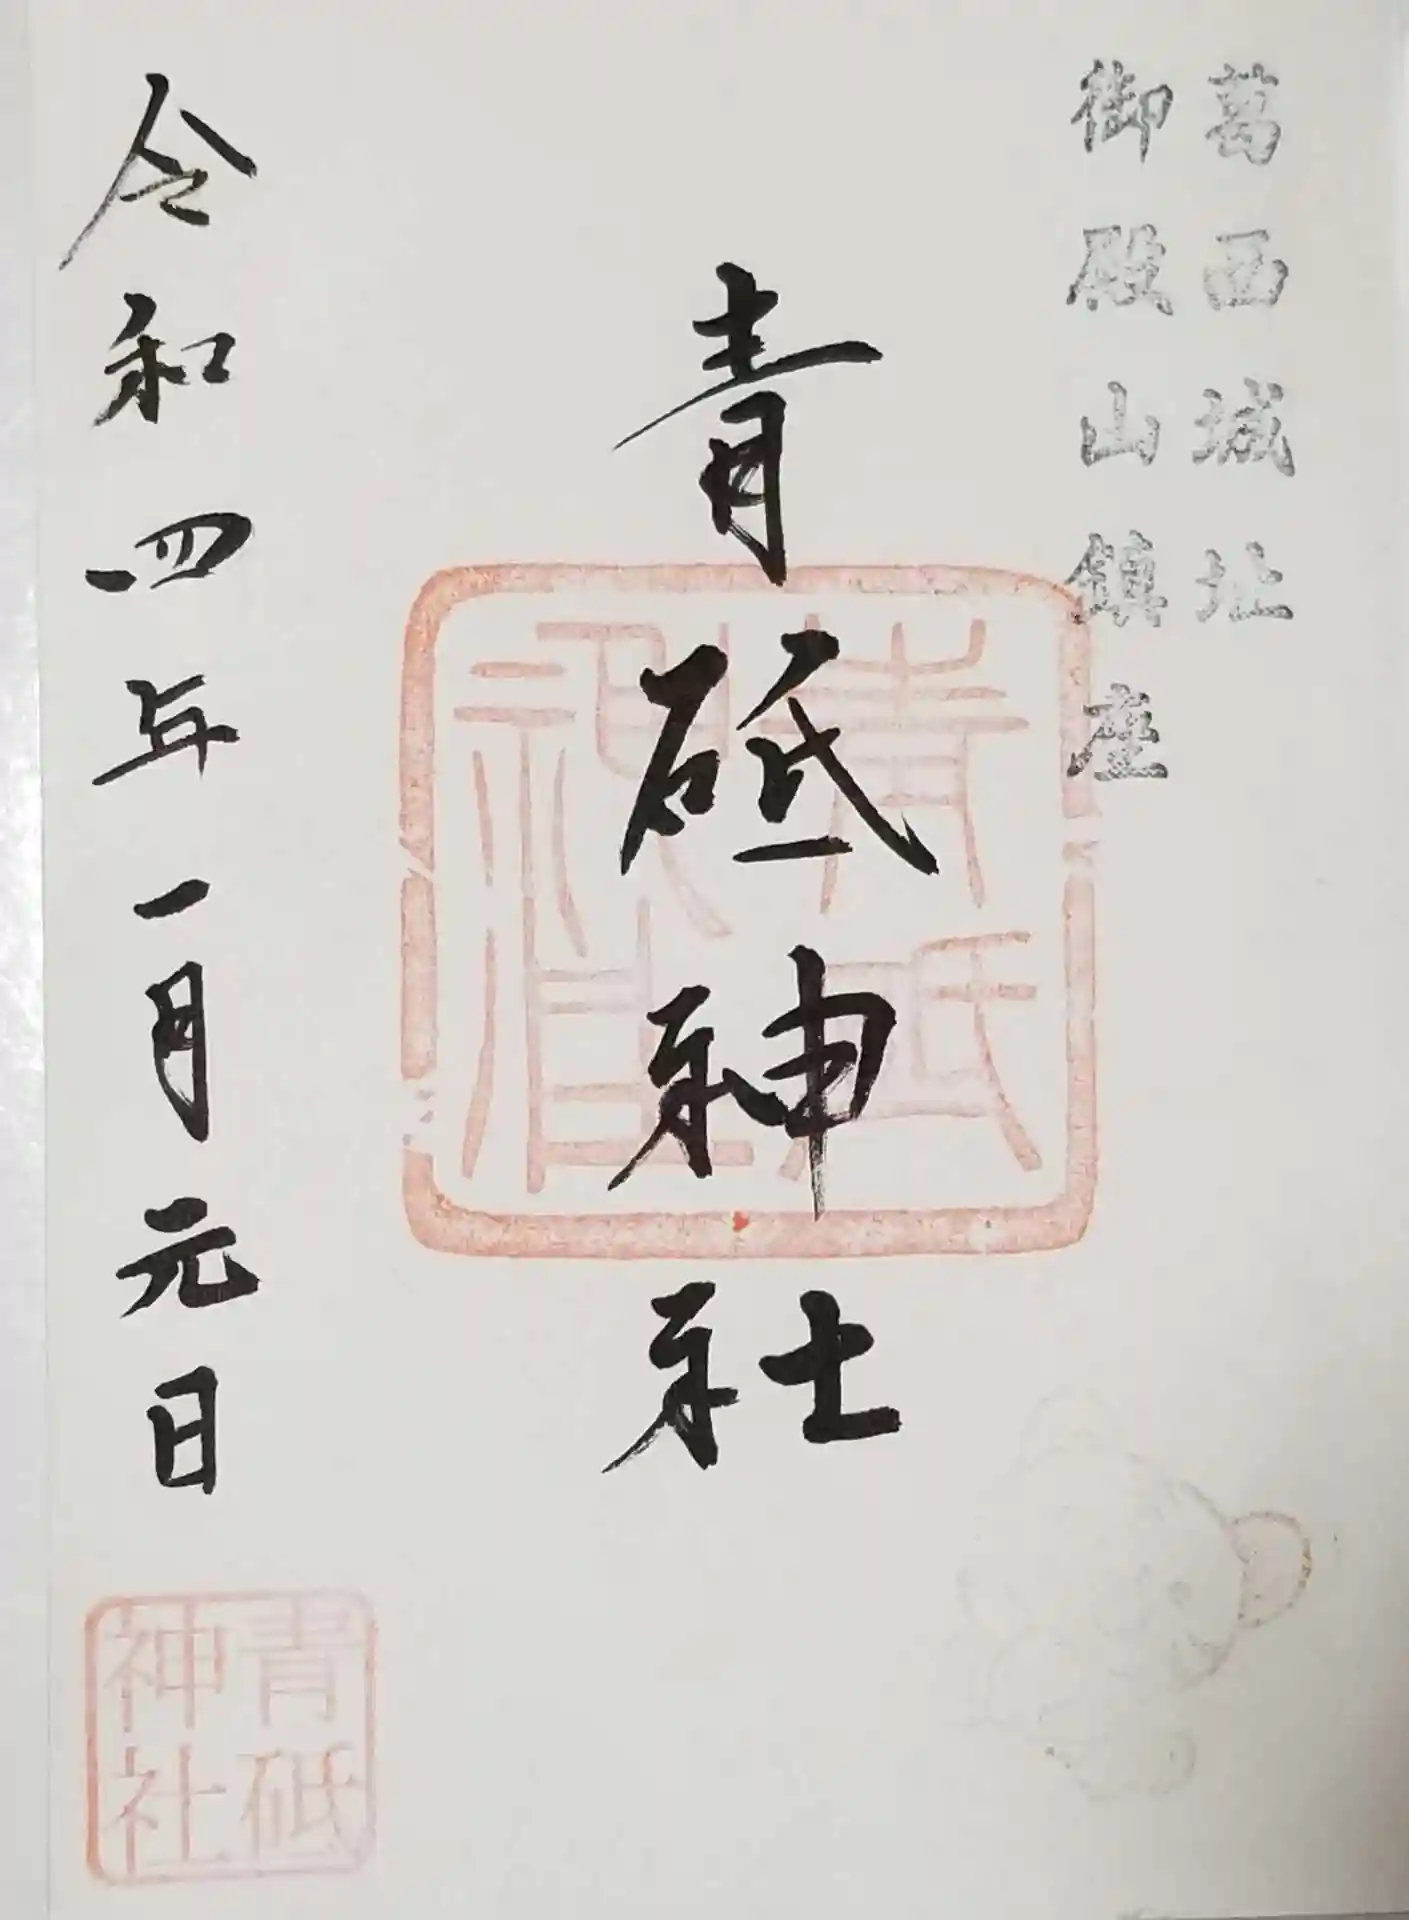 葛西城址
御殿山鎮座
青砥神社
令和四年一月元日
青砥
神社